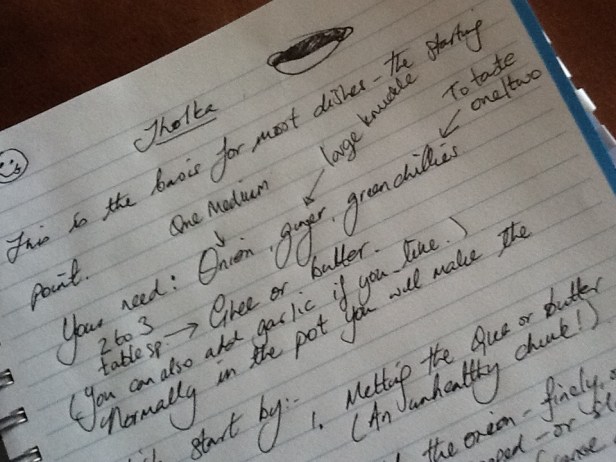 Tholka
This is the basis for most dishes - the starting
point.
One Medium
large knuckle
To taste
one/two
You need: Onion, ginger, green chillies
2 to 3
tablesp. → Ghee or butter.
(You can also add garlic if you like.)
Normally in the pot you will make the
start by:-
1. Melting the Ghee or butter
(An unhealthy chunk!)
the onion - finely,
- or